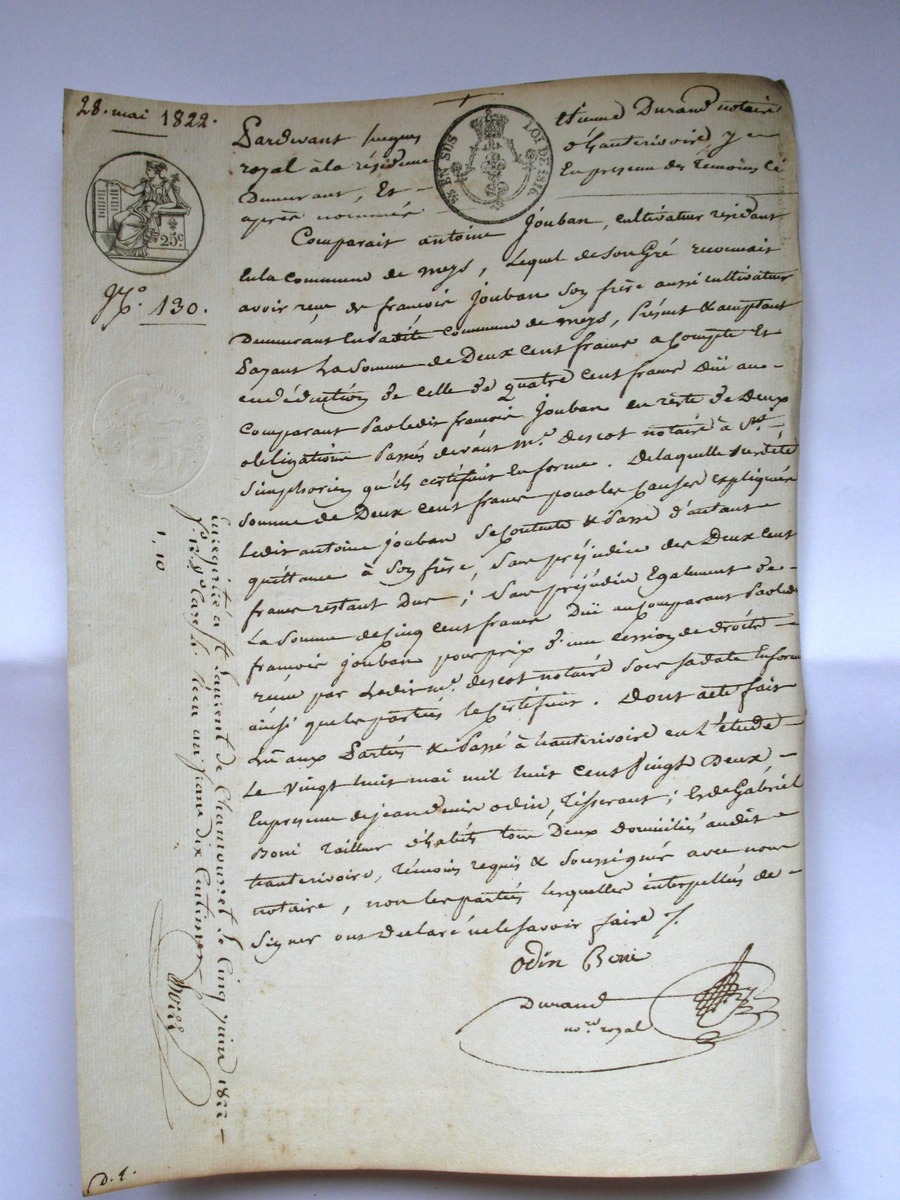 28. mai 1822.
25c
N.o 130.
EN SUS
LOI DE 1816
Pardevant jacques Etienne Durand notaire
royal à la résidence d'hauterivoire y
Demeurant, Et En présence des témoins ci
après nommés
Comparait antoine Jouban, cultivateur résidant
En la Commune de meys, Lequel de Son Gré reconnait
avoir reçu de francois Jouban Son frère aussi cultivateur
Demeurant En La dite Commune de meys, Présent & acceptant
Payant La Somme de Deux cent francs a Compte Et
en déduction de celle de quatre cent francs Düe au
Comparant Par ledit francois Jouban en reste de Deux
obligations Passées devant M.e descot notaire à St.
Simphorien qu'ils certifient En forme. De laquelle Susdite
Somme de Deux cent francs pour les Causes expliquées
Ledit antoine jouban Se Contente & Passe d'autant
quittance à Son frère, Sans préjudice des Deux cent
francs restant Dus; Sans préjudice Egalement de
La Somme de Cinq cent francs Düe au Comparant Par ledit
francois jouban pour prix d'une cession de droits
reçue par Ledit M.e descot notaire Sous Sa date En forme
ainsi que les parties le Certifient. Dont acte fait
Lu aux Parties & Passé à hauterivoire en L'étude
Le Vingt huit mai mil huit cent Vingt Deux,
En présence de jean denis odin, Tisserant; Et de Gabriel
Boni Tailleur d'habits tous Deux Domiciliés audit
hauterivoire, Témoins requis & Soussignés avec nous
notaire, non les parties lesquelles interpellées de
Signer ont Déclaré ne le Savoir faire
Odin Boni
Durand
no.re royal
Enregistré à St. Laurent de Chamousset le Cinq juin 1822
reçu un franc dix Centimes
1, 10
D. 1.